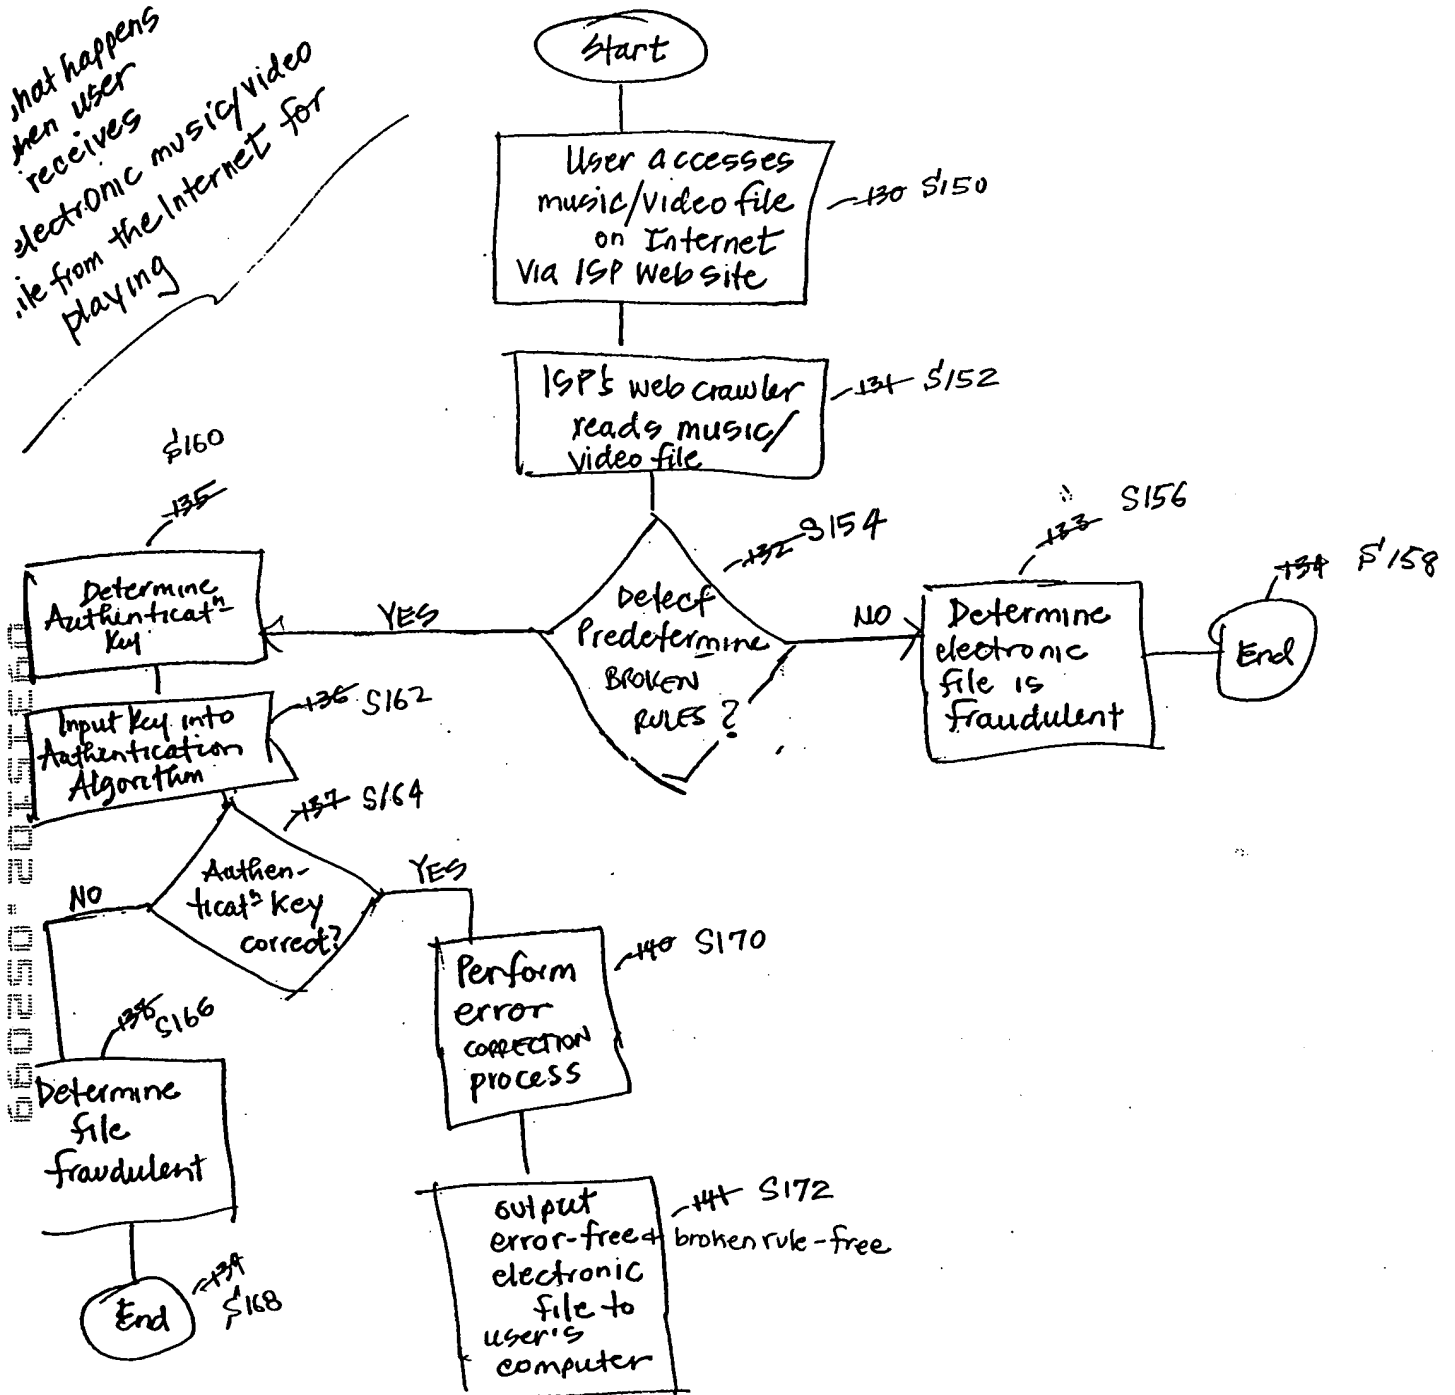 hat happens
hen user
receives
electronic music/video
ile from the Internet for
playing
Start
User accesses
music/video file
on Internet
Via ISP Web site
130 S150
ISP's web crawler
reads music/
video file
131 S152
Detect
Predetermine
BROKEN
RULES ?
132 S154
NO
Determine
electronic
file is
fraudulent
133 S156
End
134 S158
YES
Determine
Authenticatⁿ
Key
S160
135
Input Key into
Authentication
Algorithm
136 S162
Authen-
ticatⁿ Key
correct?
137 S164
NO
Determine
file
fraudulent
138 S166
End
139
S168
YES
Perform
error
CORRECTION
process
140 S170
output
error-free + broken rule-free
electronic
file to
user's
computer
141 S172